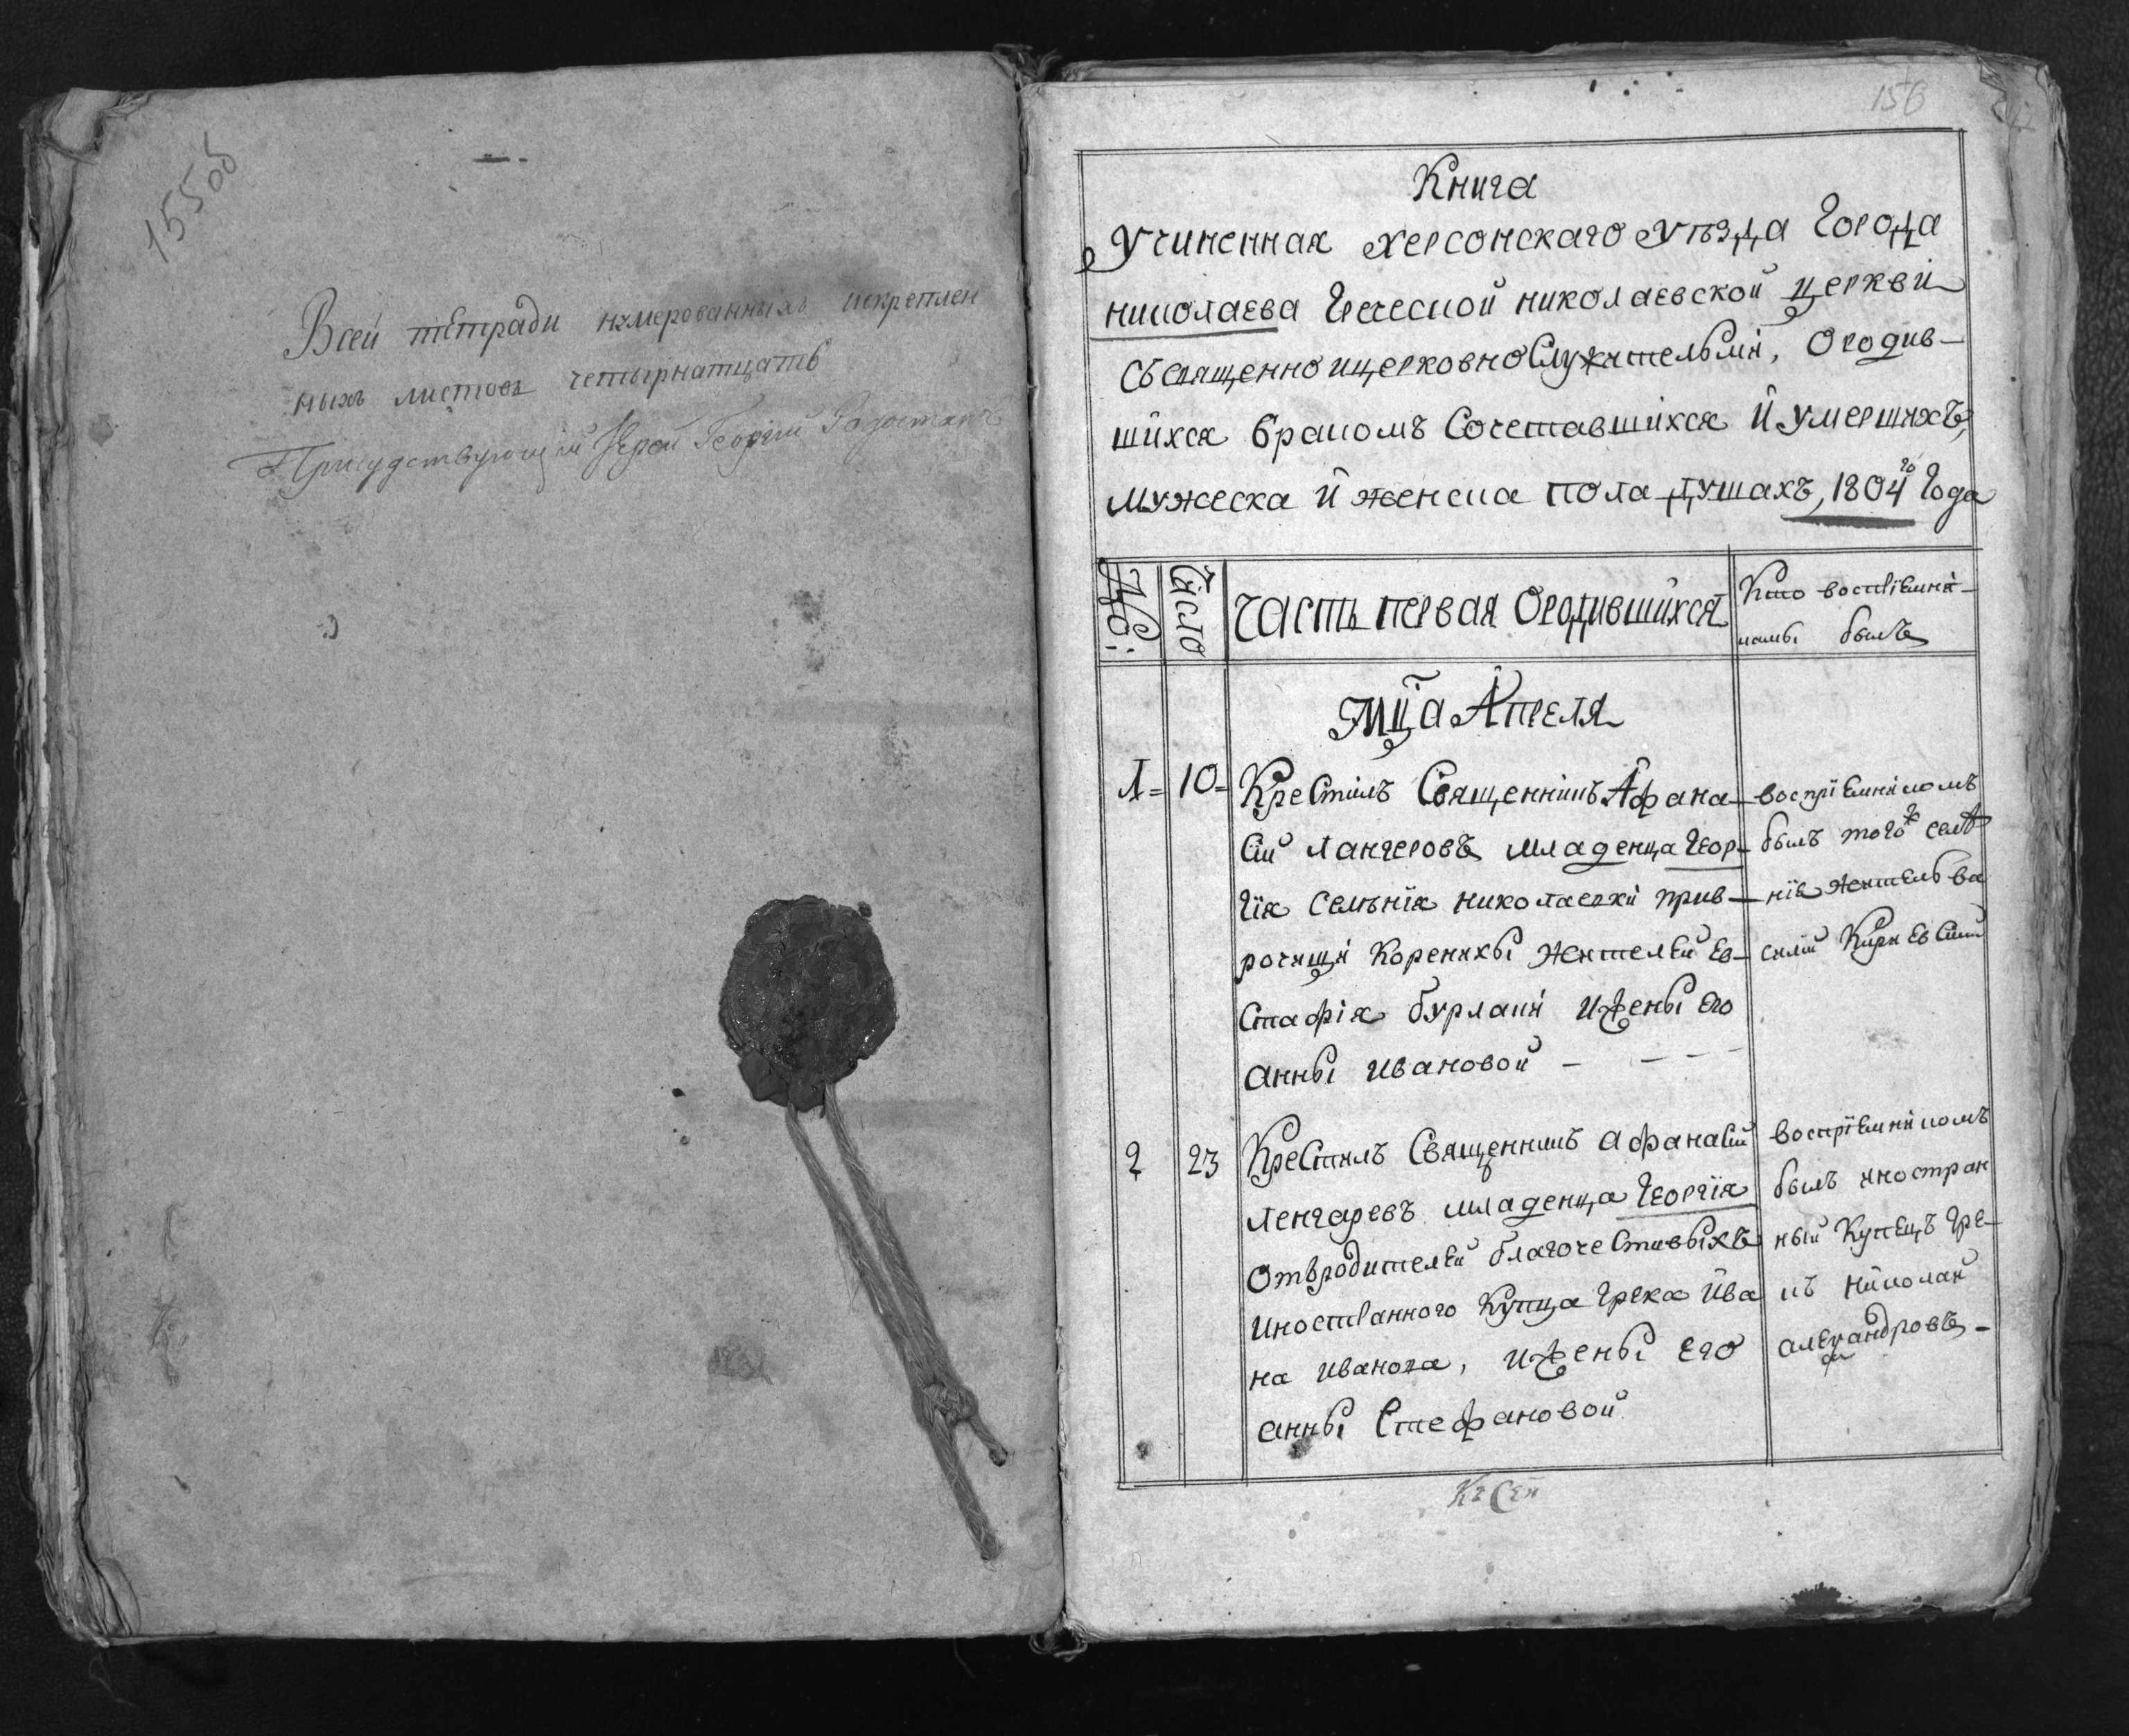 155об
Всей тетради нумерованныхъ искреплен
ныхъ листовъ четырнатцать
Присудствующій Іерей Георгій
156
Книга
Учиненная херсонскаго уѣзда Города
николаева Греческой николаевской церкви
Священно ицерковнослужительми, Ородив-
шихся бракомъ Сочетавшихся и умершихъ,
мужеска и женска пола душахъ, 1804го Года
№:
Число
Часть первая Ородившихся
Кто воспріемни-
комъ былъ
Мца Апреля
1= 10= Крестилъ Священникъ Афана-
сій лангеровъ младенца Геор-
гія селѣнія николаевки прив-
рочищи Коренихы жителей Ев-
стафія бурлаки ижены его
анны ивановой - - - -
воспріемникомъ
былъ тогож селѣ
нія житель ва
силій
2 23 Крестилъ Священникъ афанасій
ленгаревъ младенца Георгія
Отъродителей благочестивыхъ
иностранного Купца грека ива
на иванова, ижены его
анны Стефановой
воспріемникомъ
былъ иностран
ный Купецъ Гре-
къ николай
александровъ -